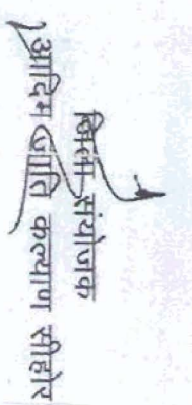 जिला संयोजक
आदिम जाति कल्याण सीहोर